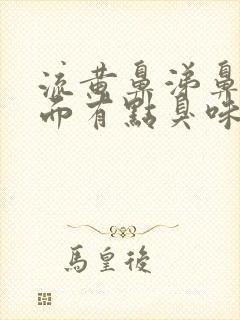 流黃鼻涕鼻
而有點臭味
馬皇後